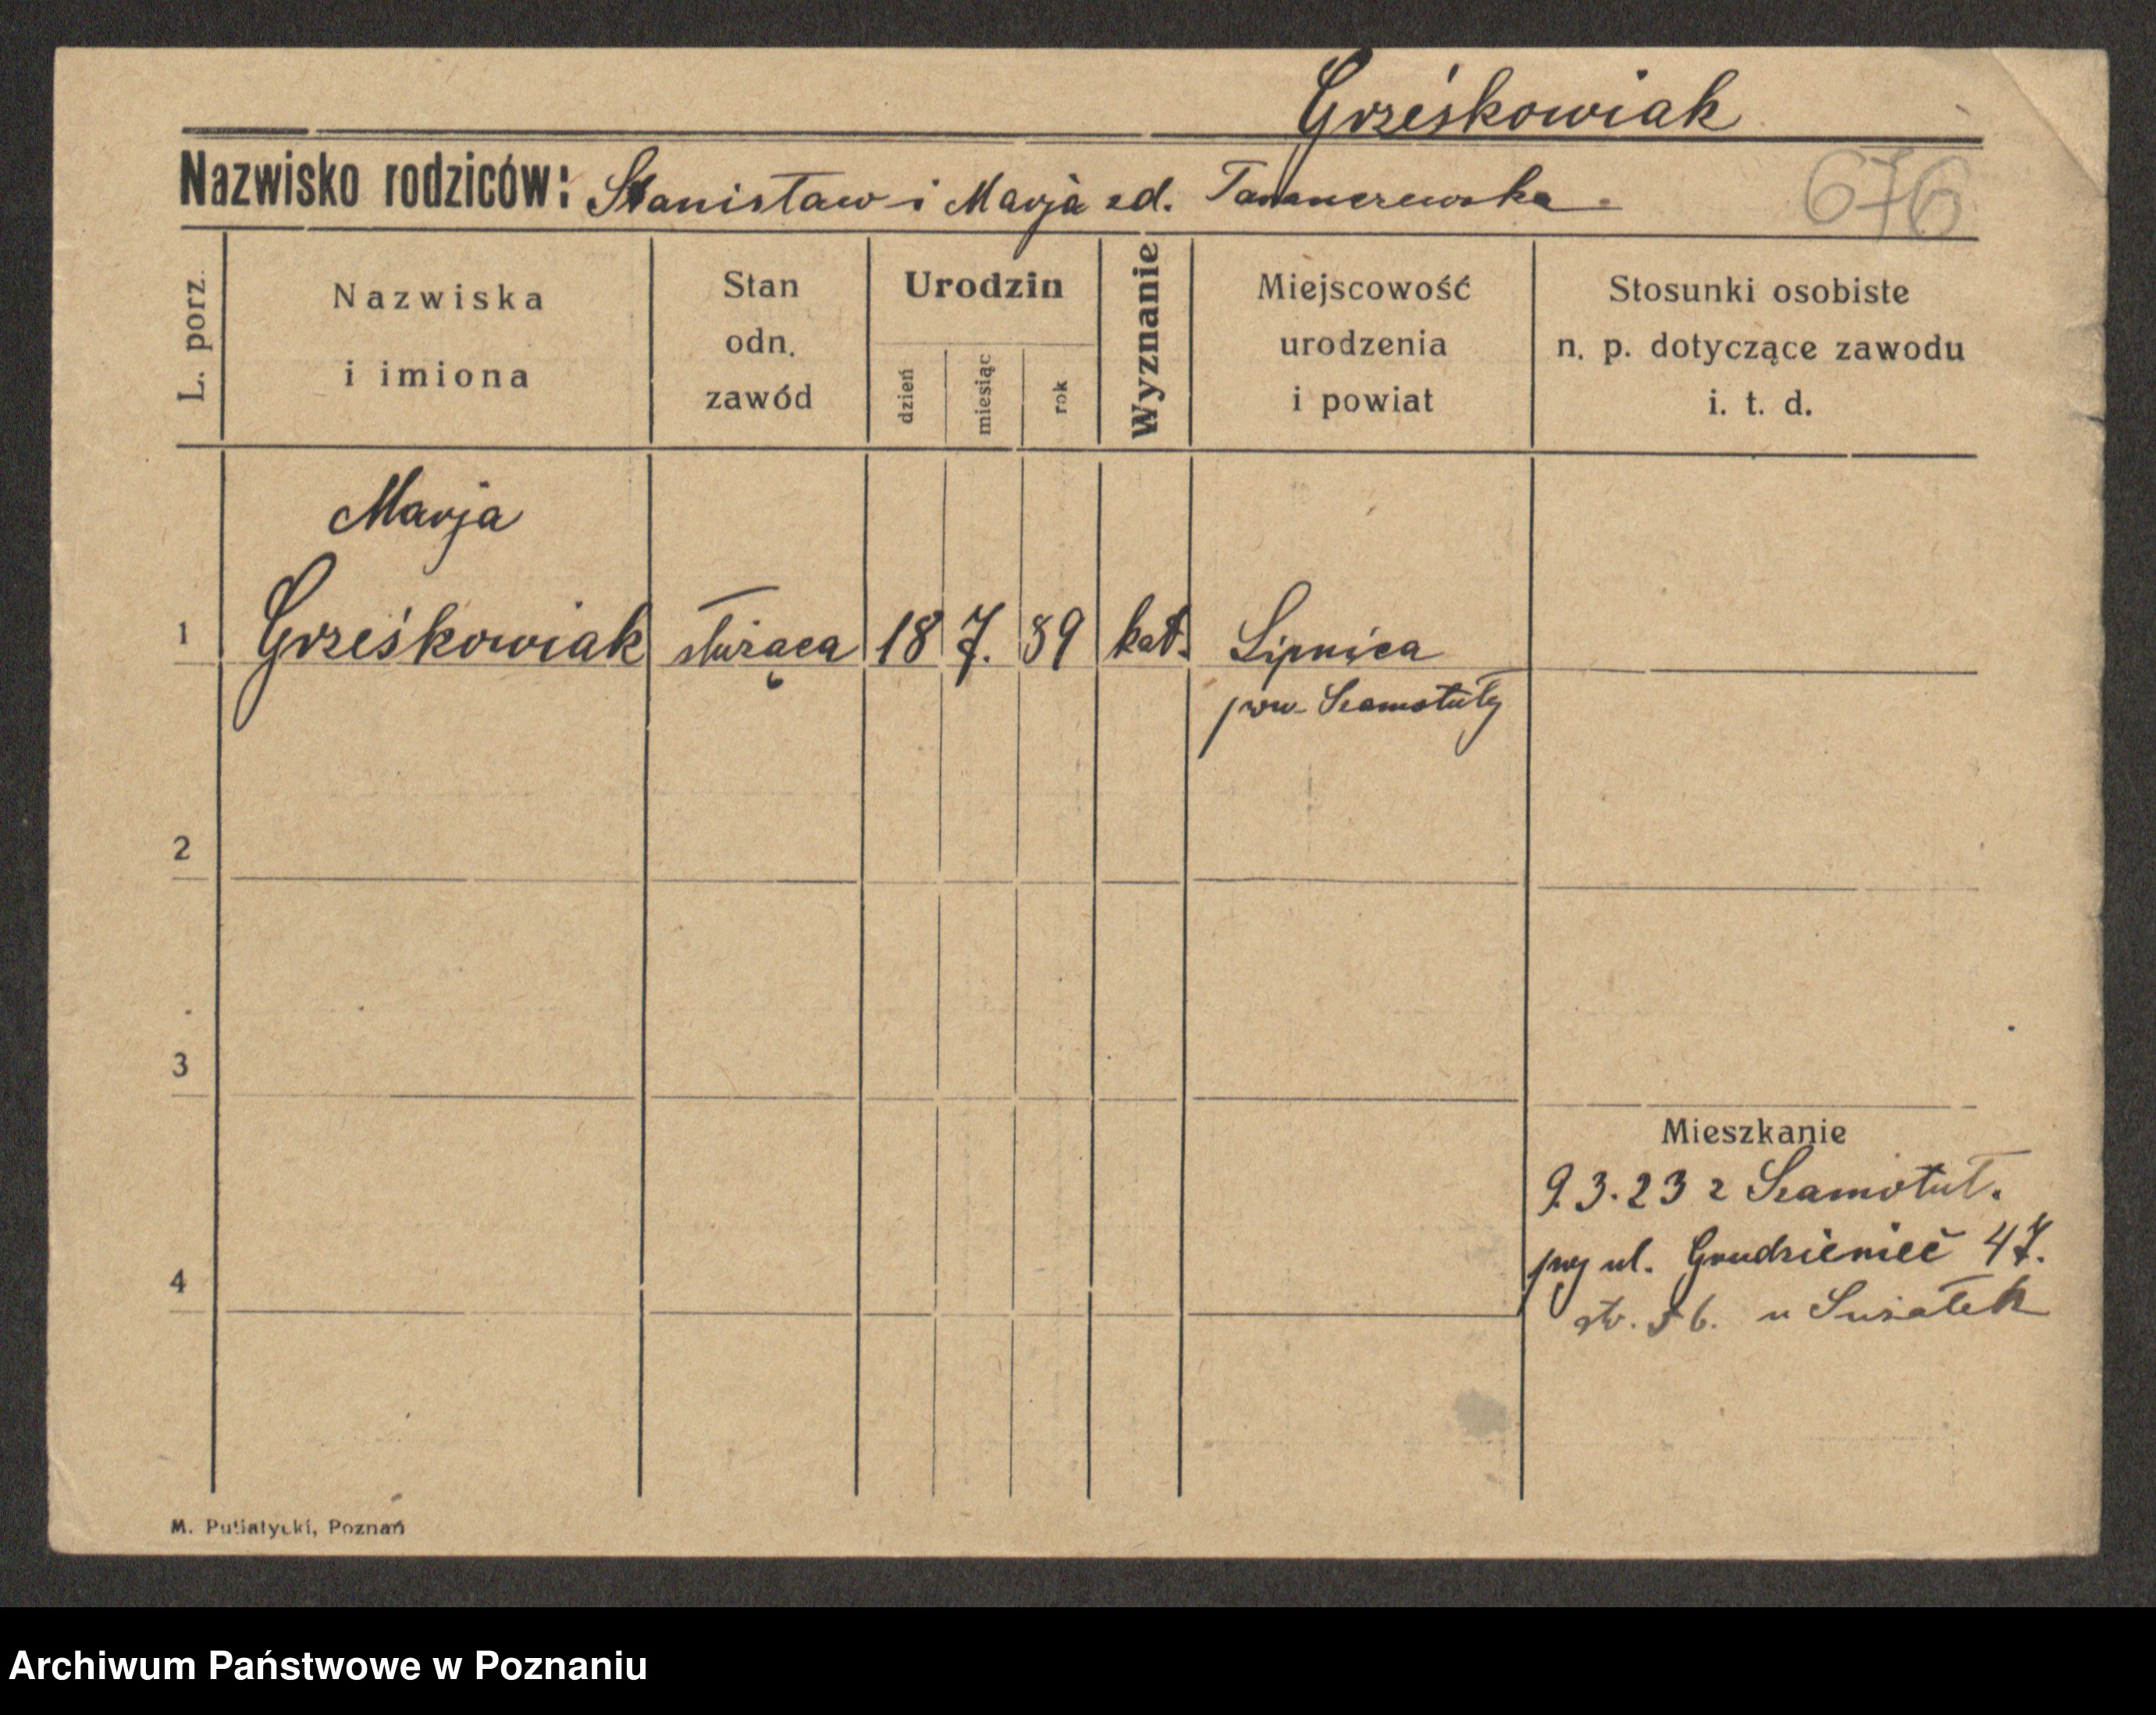 Grześkowiak
Nazwisko rodziców: Stanisław i Marja zd.
676
L. porz.
Nazwiska
i imiona
Stan
odn.
zawód
Urodzin
dzień
miesiąc
rok
Wyznanie
Miejscowość
urodzenia
i powiat
Stosunki osobiste
n. p. dotyczące zawodu
i. t. d.
Marja
1 Grześkowiak służąca 18 7. 89 kat. Lipnica
pow. Szamotuły
2
3
Mieszkanie
9.3.23 z Szamotuł.
ul. Grudzieniec 47.
4
str. 56. u
M. Putiatycki, Poznań
Archiwum Państwowe w Poznaniu